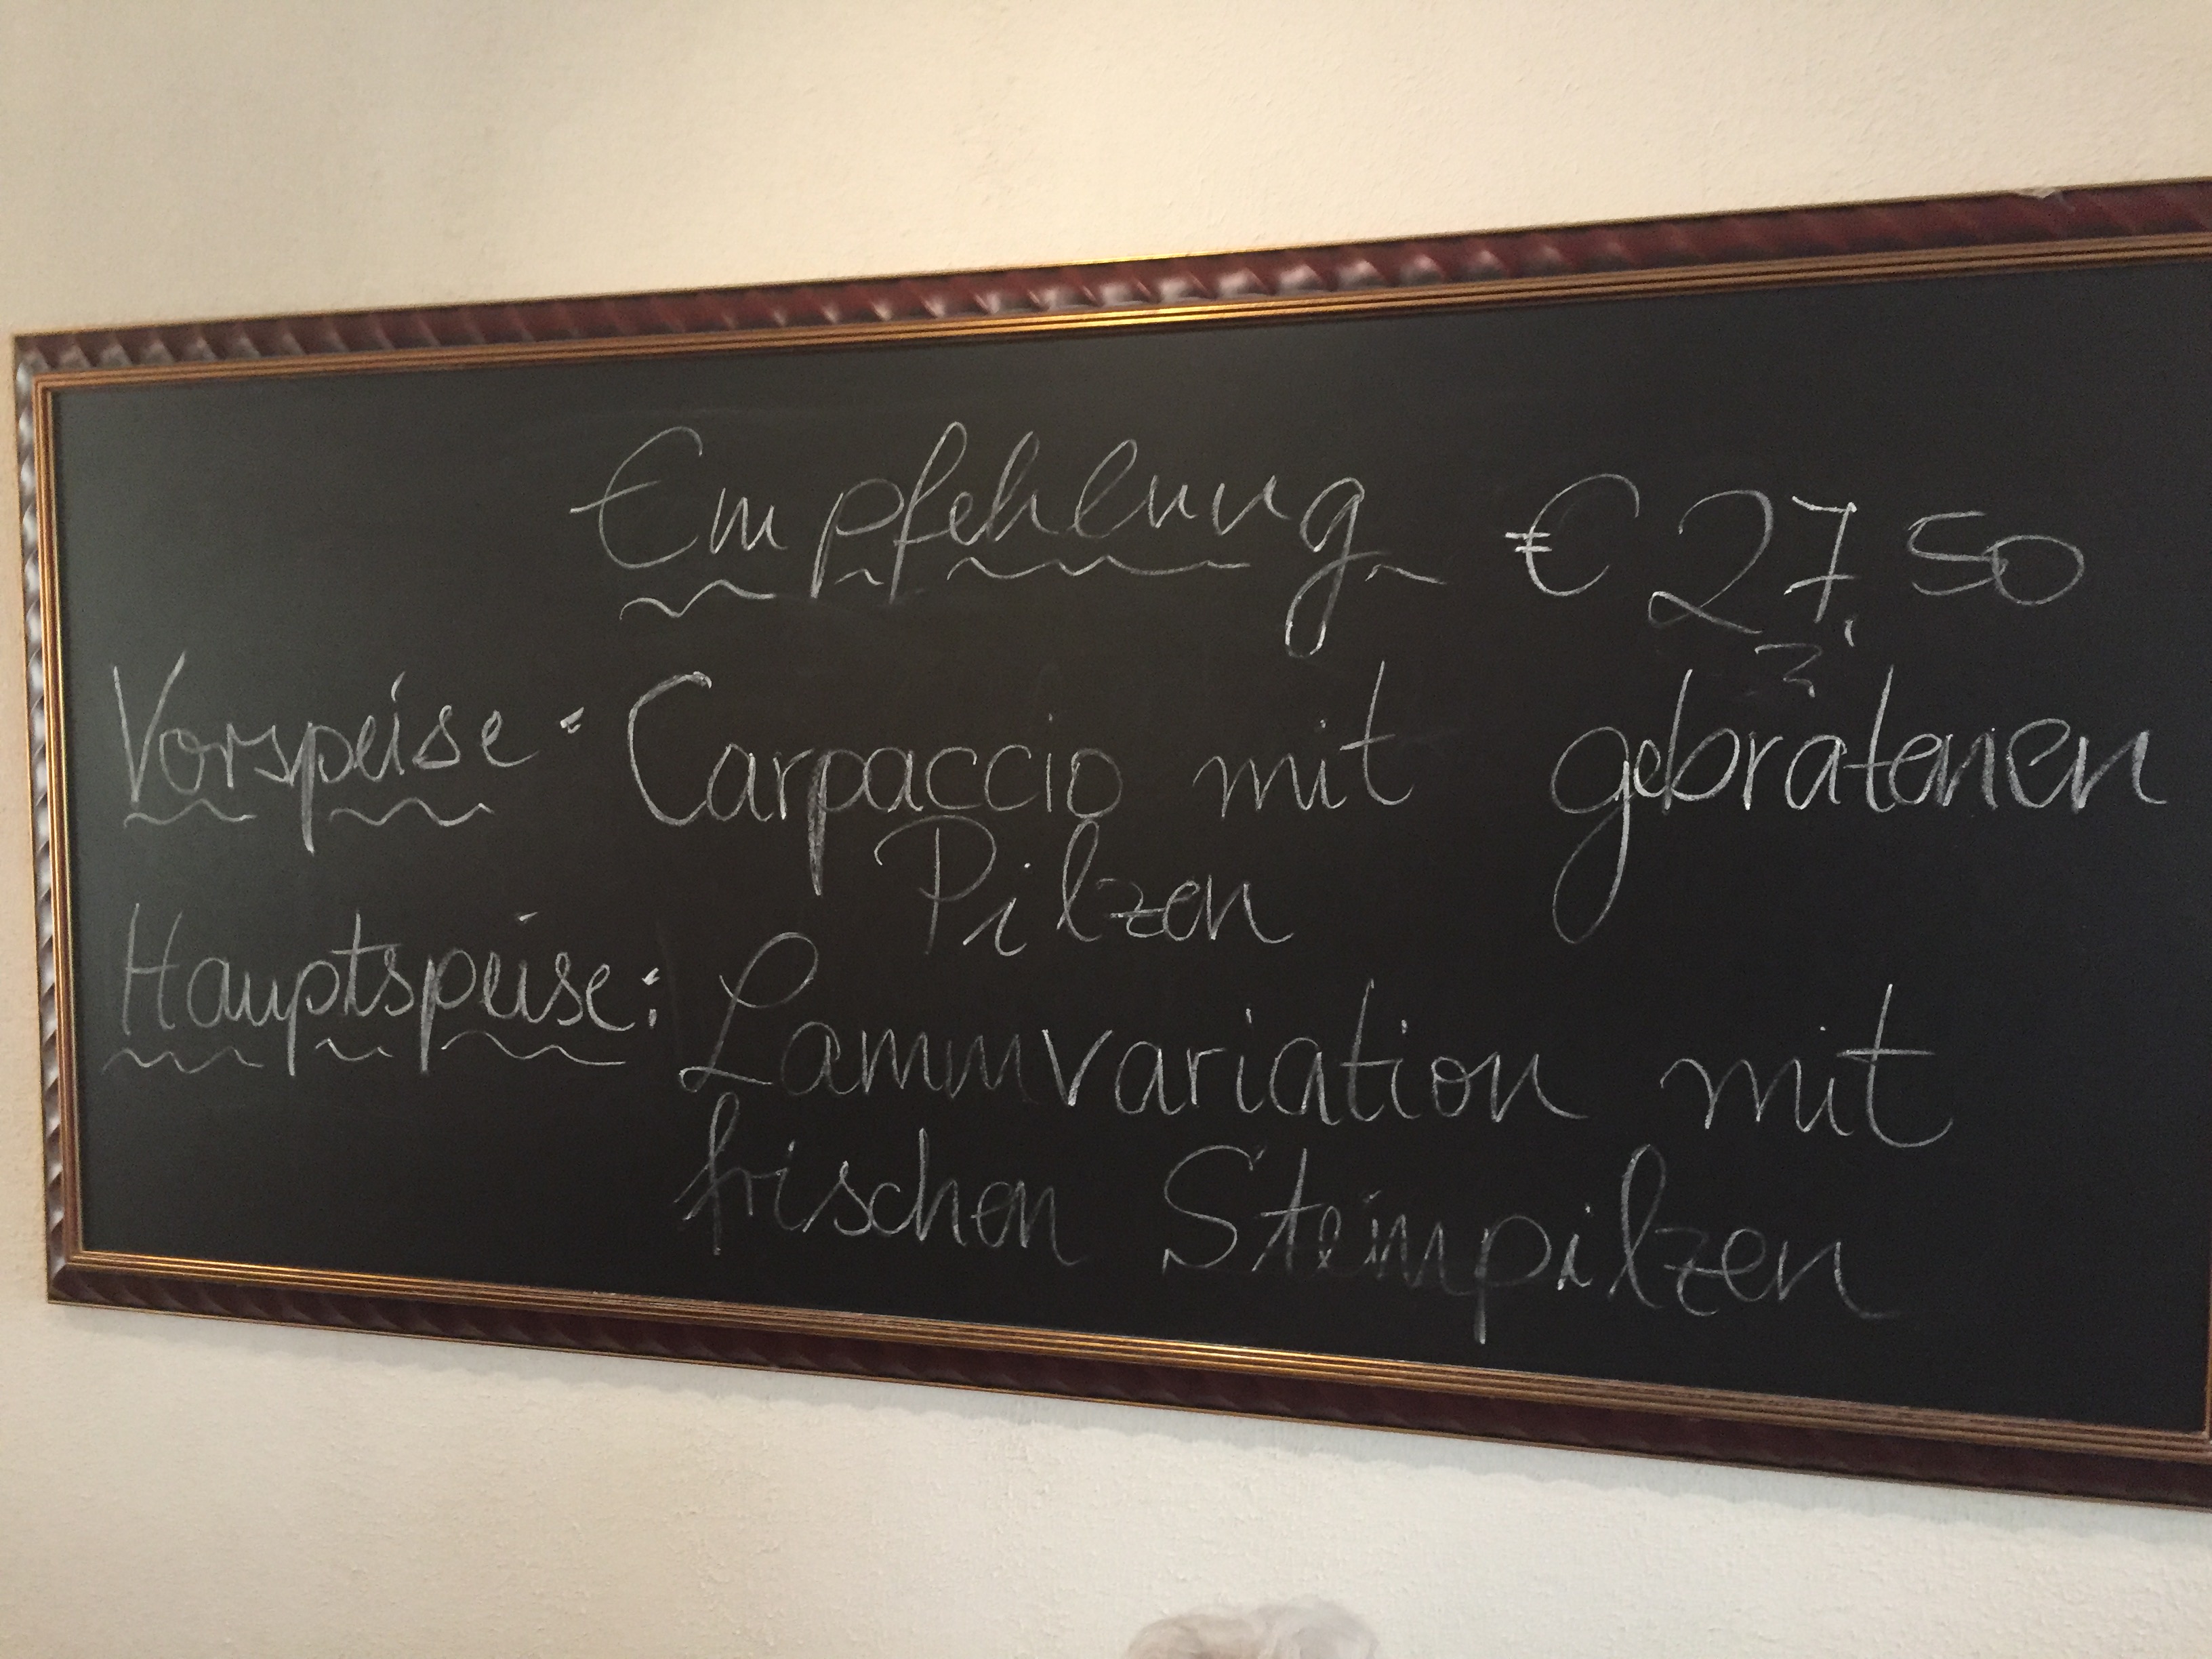 Empfehlung € 27,50
Vorspeise: Carpaccio mit gebratenen
Pilzen
Hauptspeise: Lammvariation mit
frischen Steinpilzen